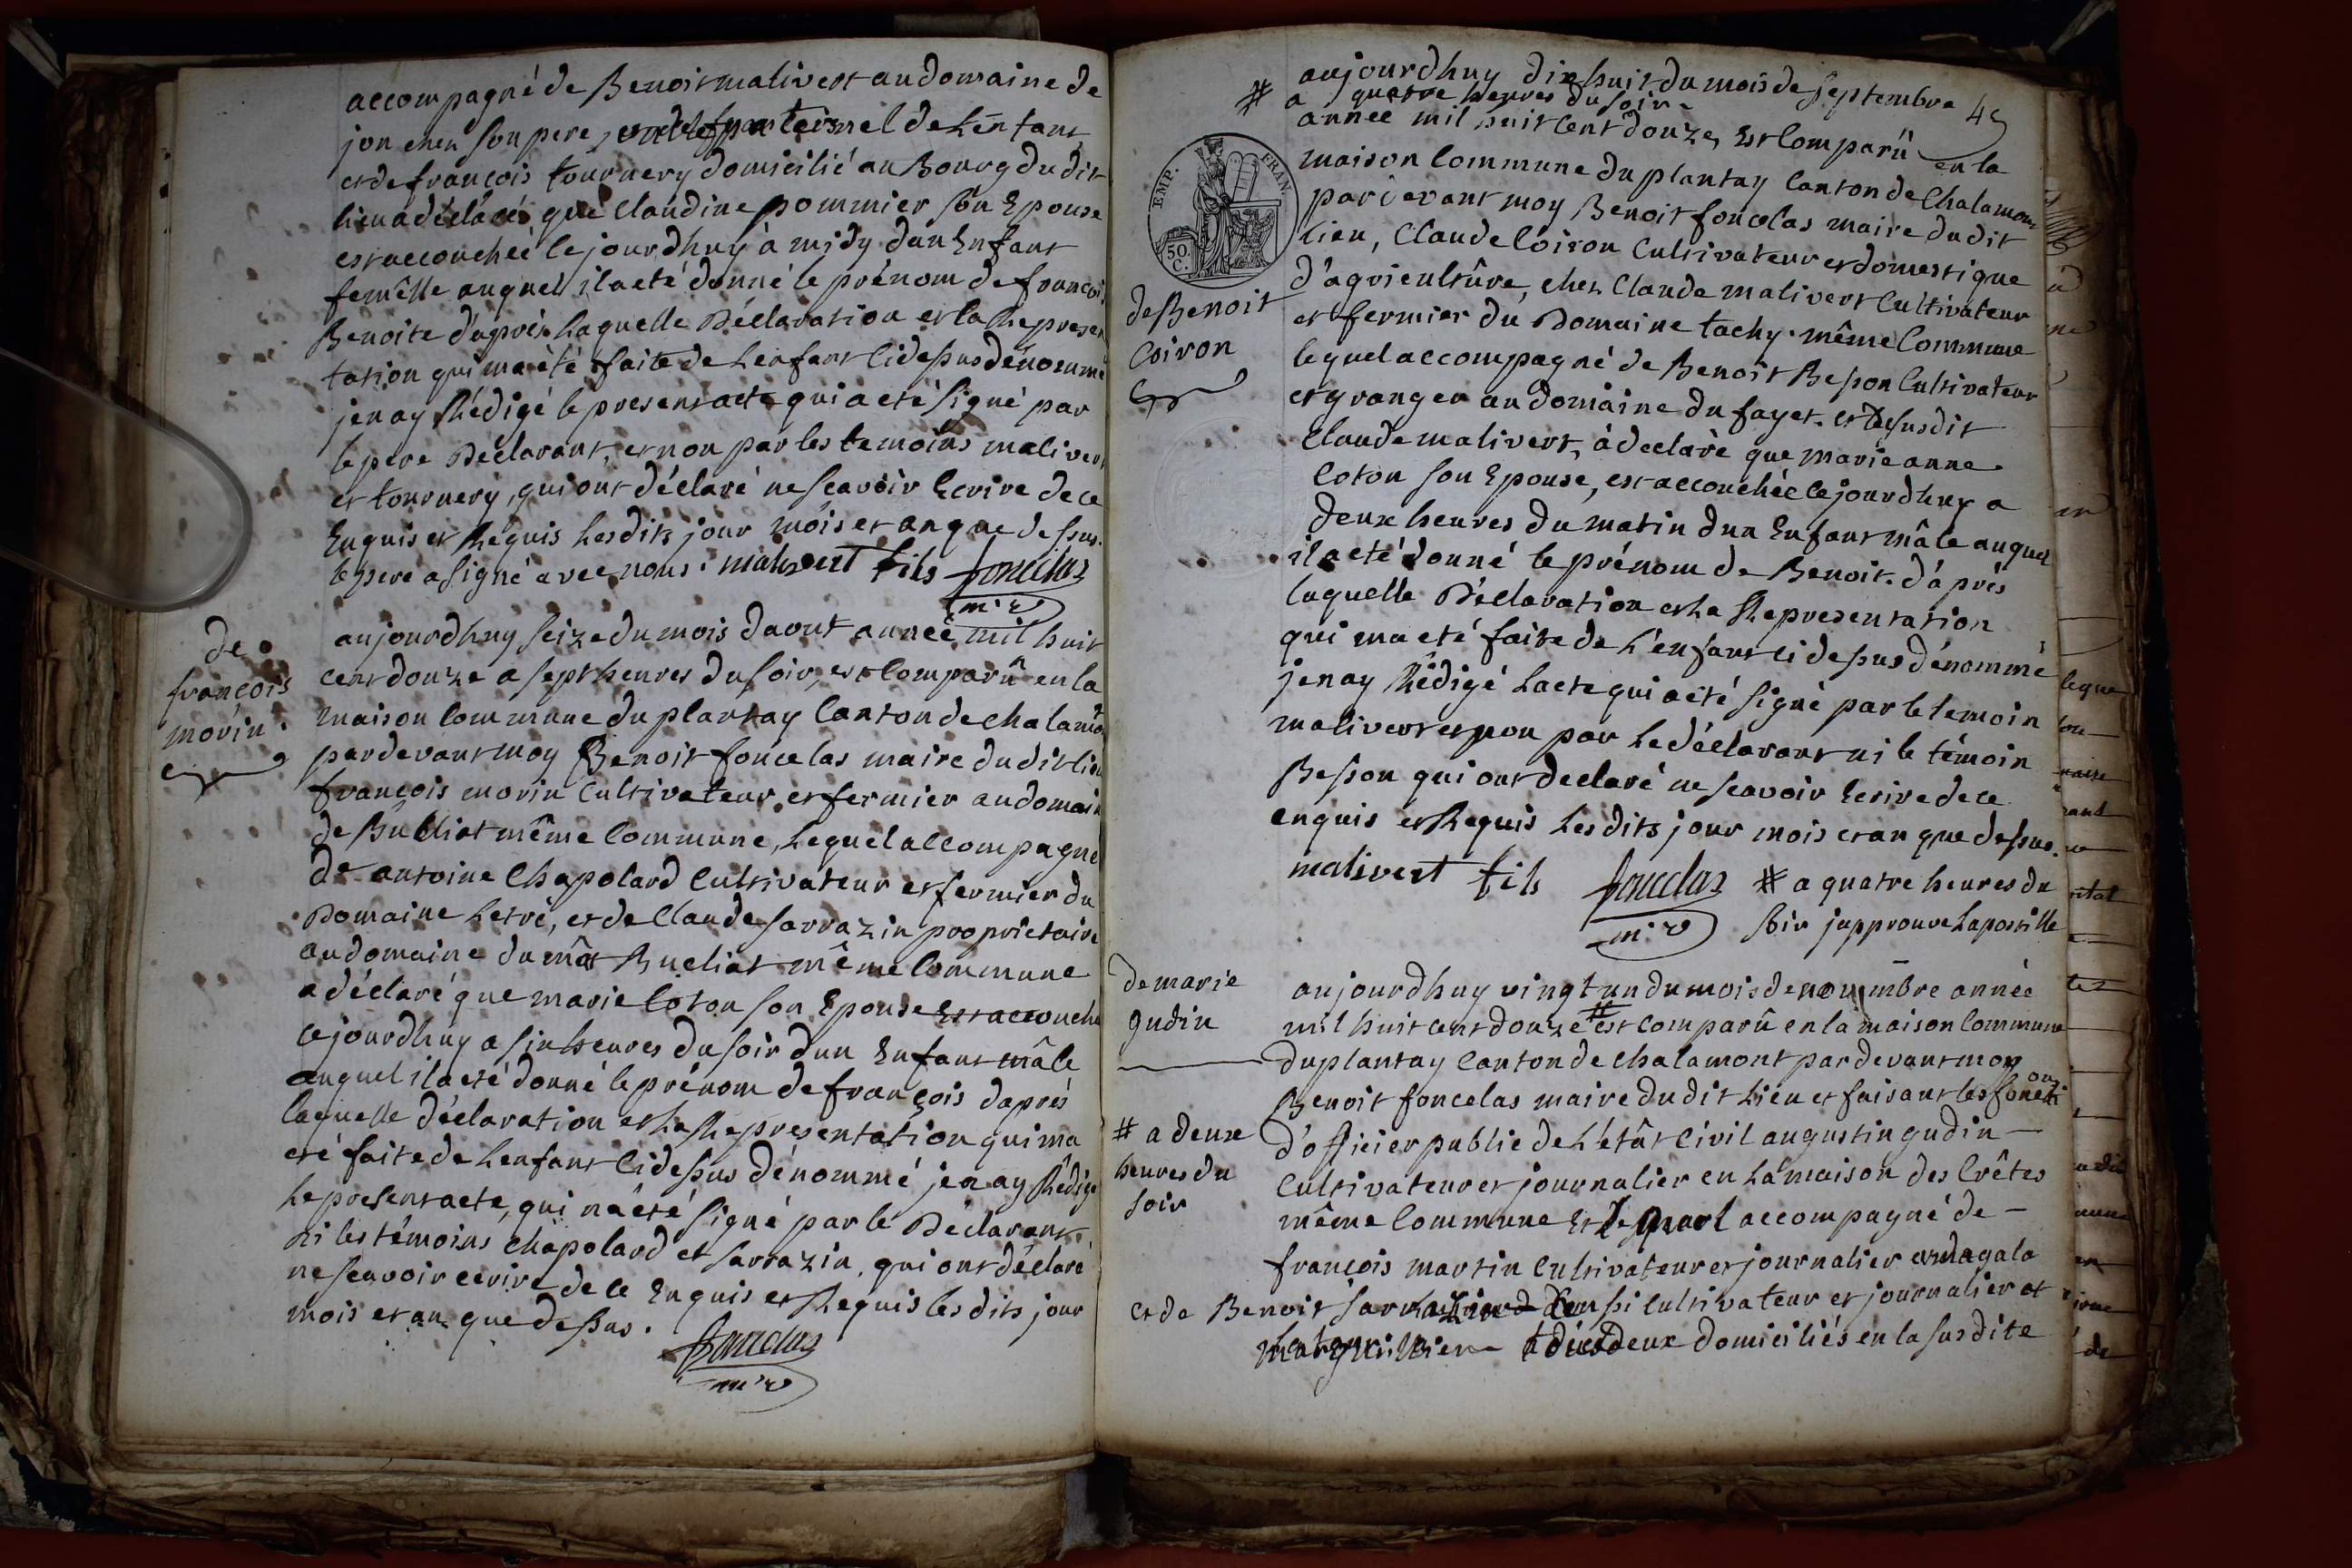 accompagné de Benoit malivert au domaine de
jon chez son pere, paternel de Lenfant
et de françois tournery domicilié au Bourg du dit
lieu a déclaré que Claudine pommier son Epouse
est accouchée cejourdhuy à midy dun Enfant
femêlle auquel il a eté donné le prénom de françoi
Benoite d'après laquelle Déclaration et la Represen
tation qui ma été faite de Lenfant Cidessus dénommé
jenay Rédigé le present acte qui a eté signé par
le pere Déclarant, et non par les temoins malivert
et tournery, qui ont déclaré ne scavoir Ecrire de ce
Enquis et Requis Lesdits jour mois et an que dessus.
le pere a signé avec nous. malivert fils fonclas
m.re
de
françois
morin.
aujourdhuy seize du mois daout année mil huit
cent douze a sept heures du soir, est Comparû en la
maison Commune du plantay Canton de chalamo.t
pardevant moy Benoit foncelas maire du dit lieu
françois morin Cultivateur et fermier au domain
de Bulliat même Commune, Lequel accompagné
de antoine Chapolard Cultivateur et fermier du
Domaine Letré, et de Claude sarrazin proprietaire
au domaine du mât Bueliat même Commune
a déclaré que marie Coton son Epouse Est accouche
cejourdhuy a six heures du soir dun Enfant mâle
auquel il a eté donné le prénom de françois daprès
laquelle déclaration et La Representation qui ma
eté faite de Lenfant Cidessus dénommé jenay Rédigé
Le present acte, qui na été signé par le Déclarant
Ni les témoins chapolard et sarrazin, qui ont déclaré
ne scavoir ecrire de ce Enquis et Requis les dits jour
mois et an que dessus.
fonclas
m.re
45
# aujourdhuy dix huit du mois de septembre
a quatre heures du soir
année mil huit Cent douze, Est Comparû en la
maison Commune du plantay Canton de Chalamont
pardevant moy Benoit foncelas maire du dit
EMP. FRAN.
50 C.
lieu, Claude Coiron Cultivateur et domestique
d'agriculture, chez Claude malivert Cultivateur
de Benoit
Coiron
et fermier du Domaine tachy. même Commune
lequel accompagné de Benoit Besson Cultivateur
et granger au domaine du fayet. et susdit
Claude malivert, à declaré que marie anne
Coton son Epouse, est accouchée cejourdhuy a
deux heures du matin dun Enfant mâle auquel
il a eté donné le prénom de Benoit. d'après
laquelle Déclaration et La Representation
qui ma eté faite de L'enfant cidessus dénommé
jenay Rédigé Lacte qui a eté signé par le temoin
malivert et non par Le déclarant ni le témoin
Besson qui ont declaré ne scavoir Ecrire de ce
enquis et Requis Lesdits jour mois et an que dessus.
malivert fils fonclas # a quatre heures du
m.re soir japprouve Lapostille
de marie
gudin
aujourdhuy vingt un du mois de année
mil huit cent douze # est comparû en la maison Commune
du plantay Canton de chalamont pardevant moy
Benoit foncelas maire du dit Lieu et faisant les foncti
ons
# a deux
heures du
soir
d'officier public de L'etât Civil augustin gudin
Cultivateur et journalier en La maison des Crêtes
même Commune Et accompagné de
françois martin Cultivateur et journalier
et de Benoit aussi Cultivateur et journalier et
deux domiciliés en la susdite